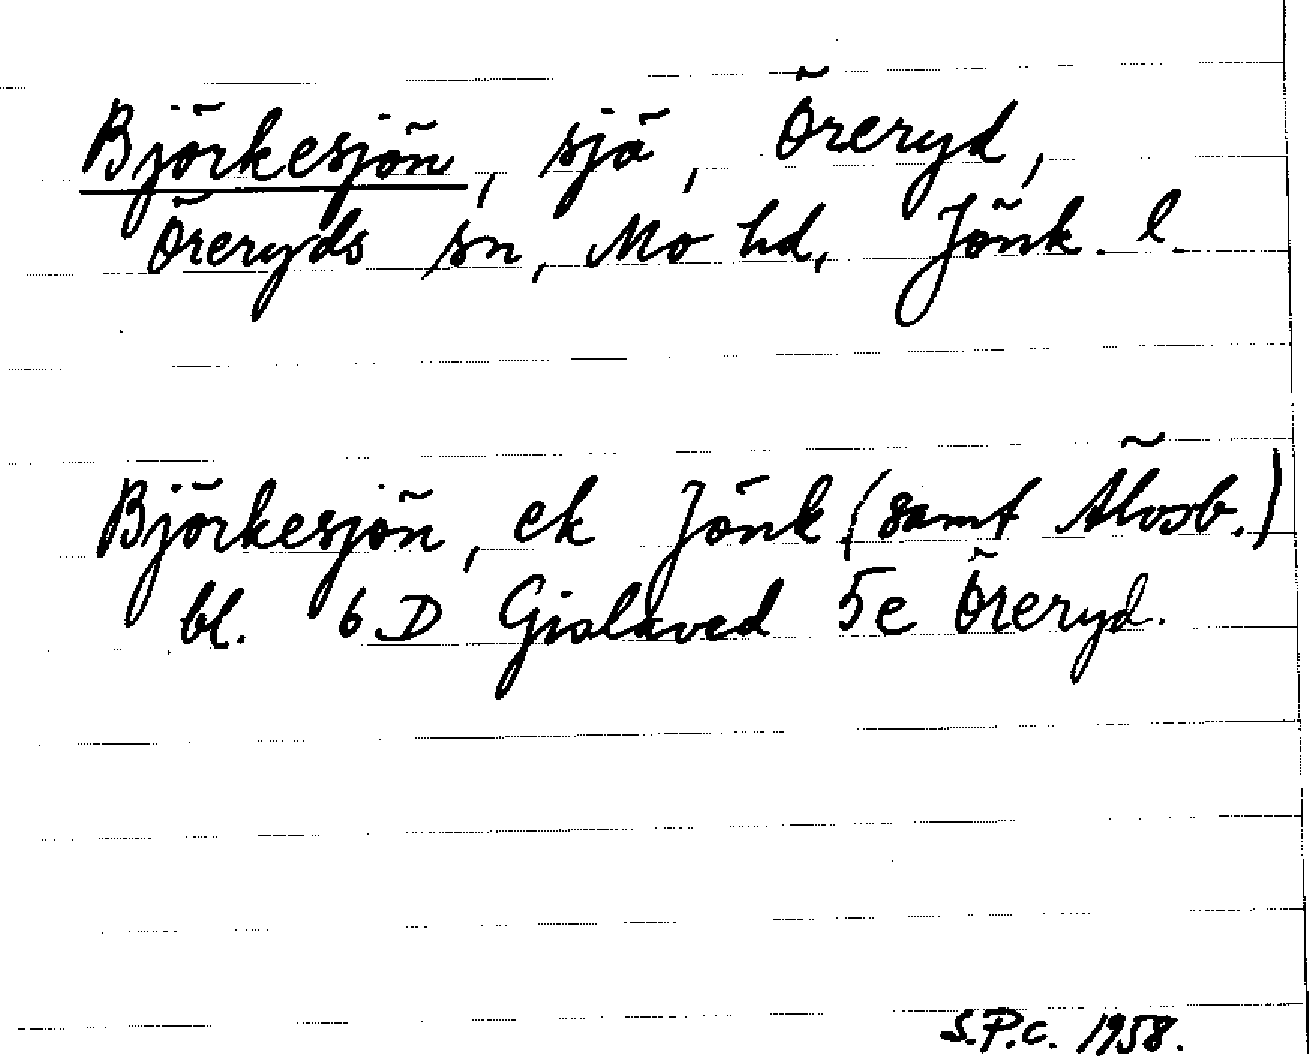 Björkesjön, sjö, Öreryd,
Öreryds sn, Mo hd, Jönk. l.
Björkesjön, ek Jönk (samt Älvsb.)
bl. 6 D Gislaved 5e Öreryd.
S.P.C. 1958.